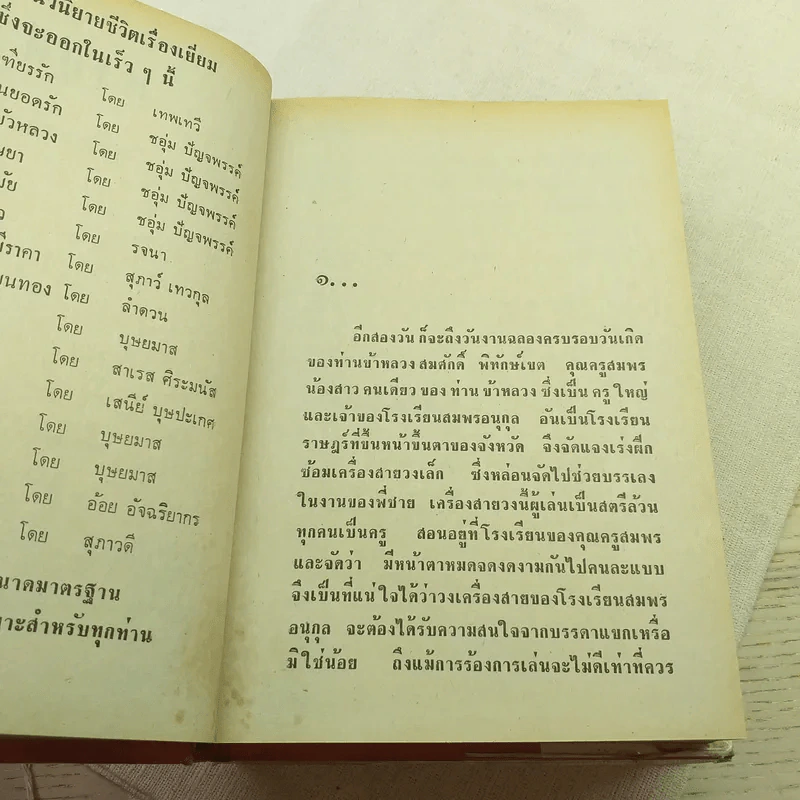 นวนิยายชีวิตเรื่องเยี่ยม
ซึ่งจะออกในเร็ว ๆ นี้
โดย เทพเทวี
ยอดรัก โดย ชอุ่ม ปัญจพรรค์
บัวหลวง โดย ชอุ่ม ปัญจพรรค์
โดย ชอุ่ม ปัญจพรรค์
โดย ชอุ่ม ปัญจพรรค์
โดย รจนา
ราคา โดย สุภาว์ เทวกุล
ทอง โดย ลำดวน
โดย บุษยมาส
โดย สาเรส ศิระมนัส
โดย เสนีย์ บุษปะเกศ
โดย บุษยมาส
โดย บุษยมาส
โดย อ้อย อัจฉริยากร
โดย สุภาวดี
มาตรฐาน
สำหรับทุกท่าน
๑...
อีกสองวัน ก็จะถึงวันงานฉลองครบรอบวันเกิด
ของท่านข้าหลวง สมศักดิ์ พิทักษ์เขต คุณครูสมพร
น้องสาว คนเดียว ของ ท่าน ข้าหลวง ซึ่งเป็น ครู ใหญ่
และเจ้าของโรงเรียนสมพรอนุกูล อันเป็นโรงเรียน
ราษฎร์ที่ขึ้นหน้าขึ้นตาของจังหวัด จึงจัดแจงเร่งฝึก
ซ้อมเครื่องสายวงเล็ก ซึ่งหล่อนจัดไปช่วยบรรเลง
ในงานของพี่ชาย เครื่องสายวงนี้ผู้เล่นเป็นสตรีล้วน
ทุกคนเป็นครู สอนอยู่ที่โรงเรียนของคุณครูสมพร
และจัดว่า มีหน้าตาหมดจดงดงามกันไปคนละแบบ
จึงเป็นที่แน่ใจได้ว่าวงเครื่องสายของโรงเรียนสมพร
อนุกูล จะต้องได้รับความสนใจจากบรรดาแขกเหรื่อ
มิใช่น้อย ถึงแม้การร้องการเล่นจะไม่ดีเท่าที่ควร